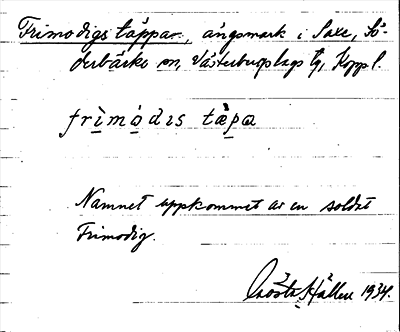 Frimodigs täppar, ängsmark i Saxe, Sö-
derbärke sn, Västerbergslags tg, Kopp l.
frìmódıs tæ̀pa
Namnet uppkommet av en soldat
Frimodig.
Gösta Hållen 1934.